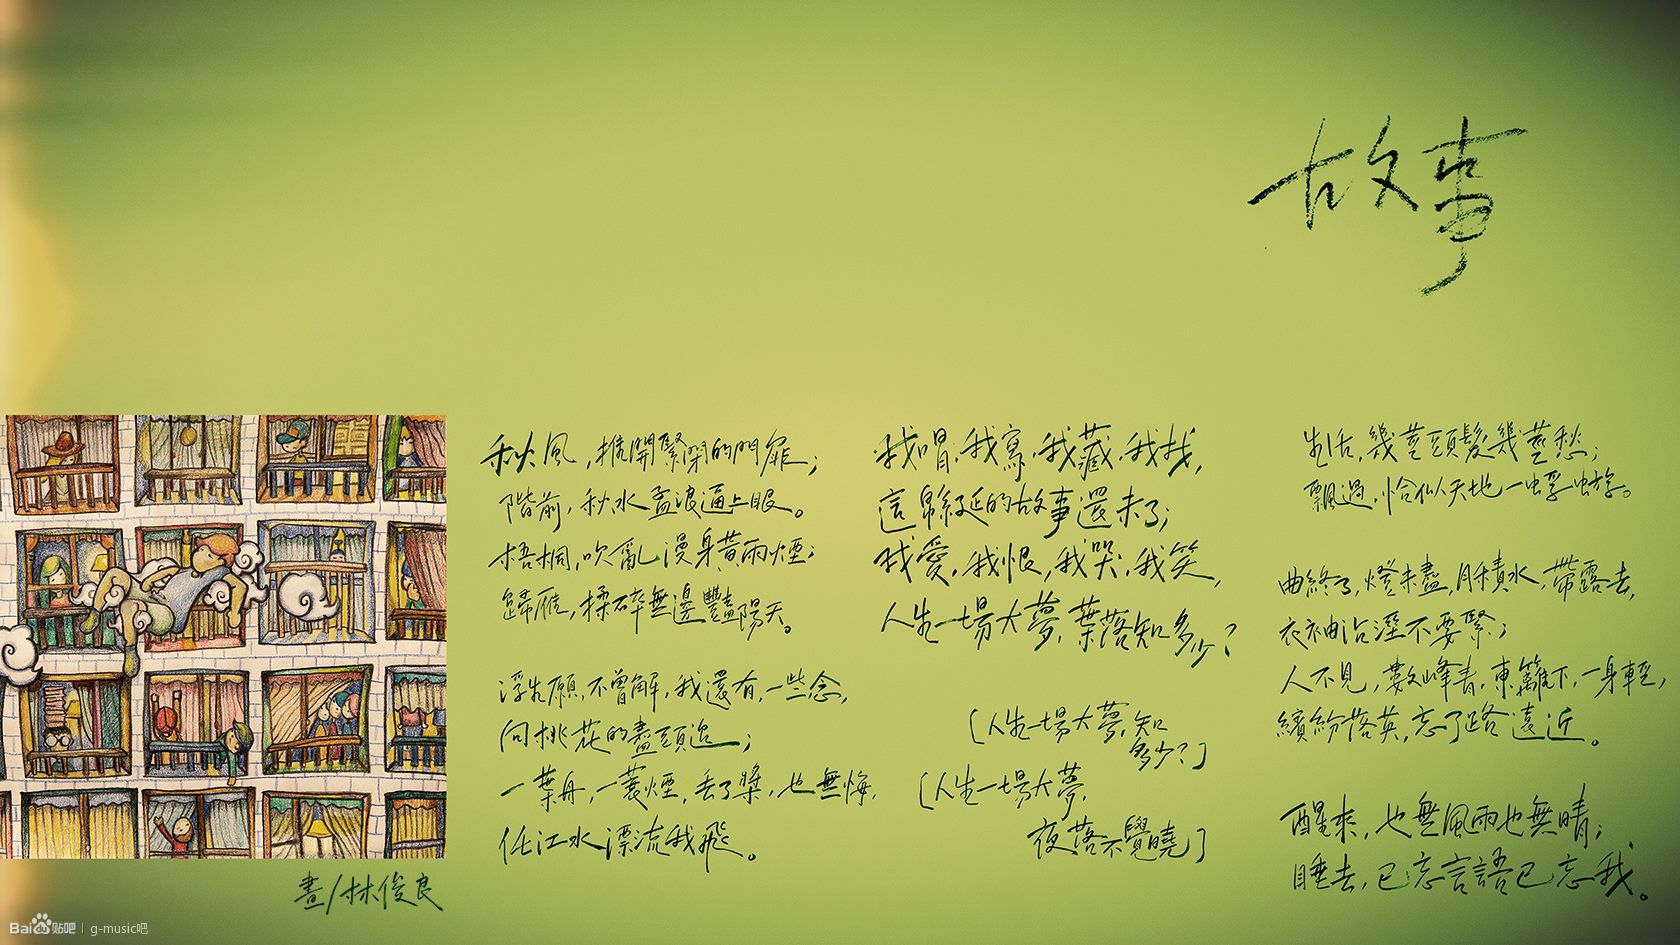 故事
秋風,推開緊閉的門扉;
階前,秋水孟浪逼上眼。
梧桐,吹亂漫身黃雨煙;
歸雁,揉碎無邊豔陽天。
浮生願,不曾解,我還有,一些念,
向桃花的盡頭追;
一葉舟,一蓑煙,丟了槳,也無悔,
任江水漂流我飛。
我唱,我寫,我藏,我找,
這綿延的故事還未了;
我愛,我恨,我哭,我笑,
人生一場大夢,葉落知多少?
〔人生一場大夢,知
多少?〕
〔人生一場大夢,
夜落不覺曉〕
生活,幾莖頭髮幾莖愁;
飄過,恰似天地一蜉蝣。
曲終了,燈未盡,月積水,帶露去,
衣袖沾溼不要緊;
人不見,數峰青,東籬下,一身輕,
繽紛落英,忘了路遠近。
醒來,也無風雨也無晴;
睡去,已忘言語已忘我。
畫/林俊良
Bai贴吧 | g-music吧